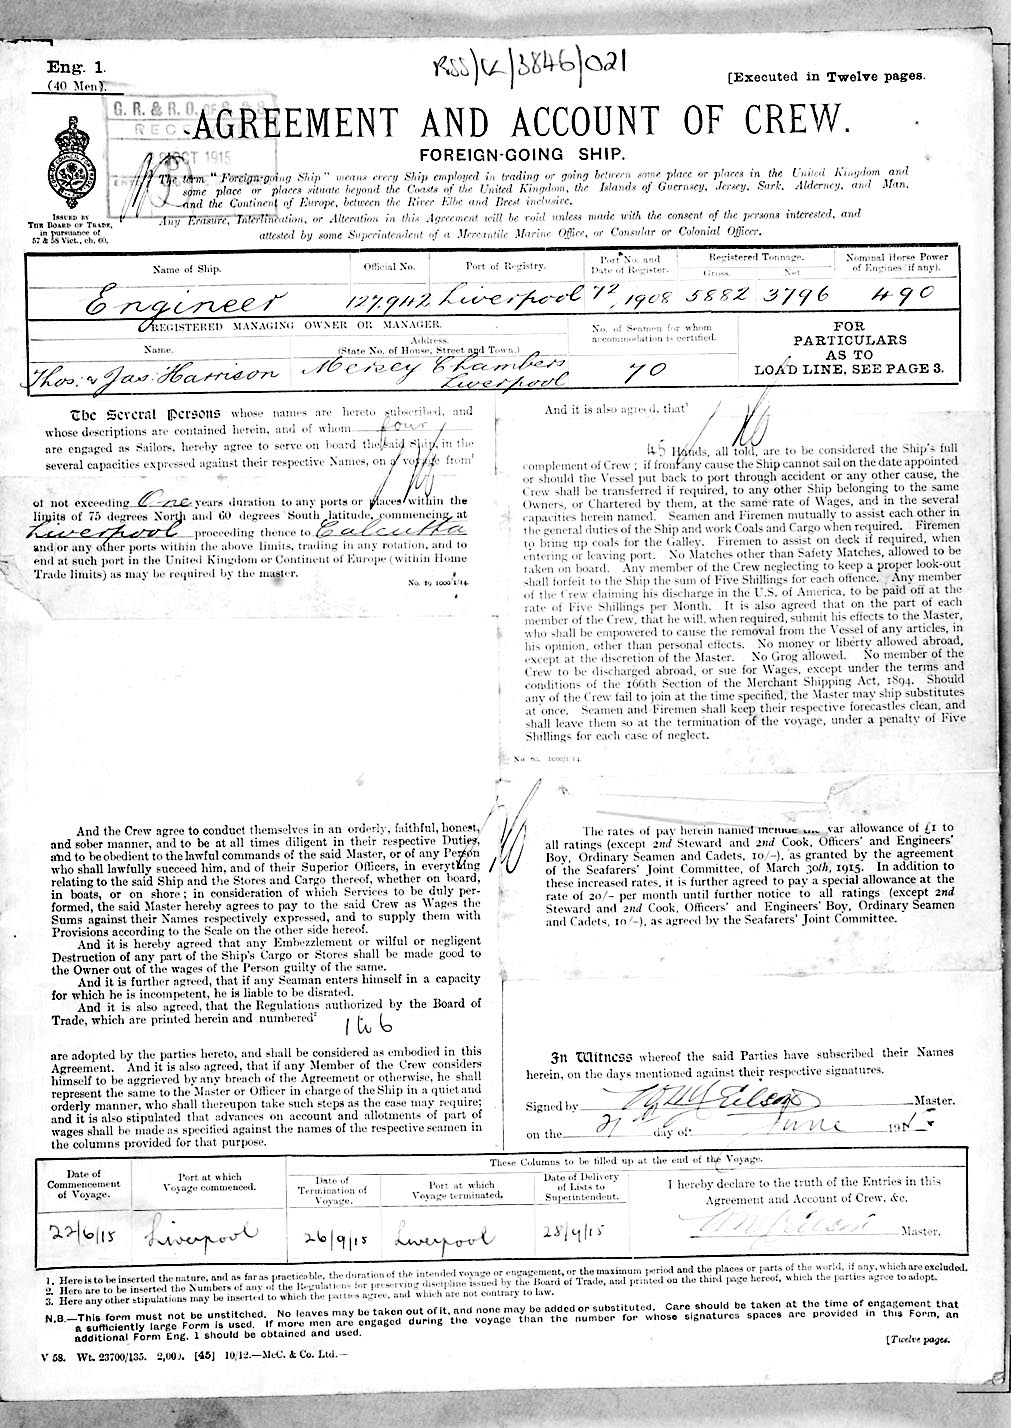 Eng. 1.
(40 Men).
RSS/CL/3846/021
[Executed in Twelve pages.
G. R. & R. O. OF S. & S.
RECE
OCT 1915
AGREEMENT AND ACCOUNT OF CREW.
FOREIGN-GOING SHIP.
The term "Foreign-going Ship" means every Ship employed in trading or going between some place or places in the United Kingdom and
some place or places situate beyond the Coasts of the United Kingdom, the Islands of Guernsey, Jersey, Sark, Alderney, and Man,
and the Continent of Europe, between the River Elbe and Brest inclusive.
Any Erasure, Interlineation, or Alteration in this Agreement will be void unless made with the consent of the persons interested, and
attested by some Superintendent of a Mercantile Marine Office, or Consular or Colonial Officer.
ISSUED BY
THE BOARD OF TRADE,
in pursuance of
57 & 58 Vict., ch. 60.
Name of Ship.
Official No.
Port of Registry.
Port No. and
Date of Register.
Registered Tonnage.
Gross.
Net
Nominal Horse Power
of Engines (if any).
Engineer
127,942
Liverpool
72, 1908
5882
3796
490
REGISTERED MANAGING OWNER OR MANAGER.
Name.
Address.
(State No. of House, Street and Town.)
No. of Seamen for whom
accommodation is certified.
FOR
PARTICULARS
AS TO
LOAD LINE, SEE PAGE 3.
Thos: & Jas: Harrison
Mersey Chambers
Liverpool
70
The Several Persons whose names are hereto subscribed, and
whose descriptions are contained herein, and of whom four
are engaged as Sailors, hereby agree to serve on board the said Ship, in the
several capacities expressed against their respective Names, on a voyage from¹
of not exceeding One years duration to any ports or places within the
limits of 75 degrees North and 60 degrees South latitude, commencing at
Liverpool proceeding thence to Calcutta
and/or any other ports within the above limits, trading in any rotation, and to
end at such port in the United Kingdom or Continent of Europe (within Home
Trade limits) as may be required by the master.
No. 19 1000 1/14.
And the Crew agree to conduct themselves in an orderly, faithful, honest,
and sober manner, and to be at all times diligent in their respective Duties,
and to be obedient to the lawful commands of the said Master, or of any Person
who shall lawfully succeed him, and of their Superior Officers, in everything
relating to the said Ship and the Stores and Cargo thereof, whether on board,
in boats, or on shore; in consideration of which Services to be duly per-
formed, the said Master hereby agrees to pay to the said Crew as Wages the
Sums against their Names respectively expressed, and to supply them with
Provisions according to the Scale on the other side hereof.
And it is hereby agreed that any Embezzlement or wilful or negligent
Destruction of any part of the Ship's Cargo or Stores shall be made good to
the Owner out of the wages of the Person guilty of the same.
And it is further agreed, that if any Seaman enters himself in a capacity
for which he is incompetent, he is liable to be disrated.
And it is also agreed, that the Regulations authorized by the Board of
Trade, which are printed herein and numbered²
1 to 6
are adopted by the parties hereto, and shall be considered as embodied in this
Agreement. And it is also agreed, that if any Member of the Crew considers
himself to be aggrieved by any breach of the Agreement or otherwise, he shall
represent the same to the Master or Officer in charge of the Ship in a quiet and
orderly manner, who shall thereupon take such steps as the case may require;
and it is also stipulated that advances on account and allotments of part of
wages shall be made as specified against the names of the respective seamen in
the columns provided for that purpose.
And it is also agreed, that³
45 Hands, all told, are to be considered the Ship's full
complement of Crew; if from any cause the Ship cannot sail on the date appointed
or should the Vessel put back to port through accident or any other cause, the
Crew shall be transferred if required, to any other Ship belonging to the same
Owners, or Chartered by them, at the same rate of Wages, and in the several
capacities herein named. Seamen and Firemen mutually to assist each other in
the general duties of the Ship and work Coals and Cargo when required. Firemen
to bring up coals for the Galley. Firemen to assist on deck if required, when
entering or leaving port. No Matches other than Safety Matches, allowed to be
taken on board. Any member of the Crew neglecting to keep a proper look-out
shall forfeit to the Ship the sum of Five Shillings for each offence. Any member
of the Crew claiming his discharge in the U.S. of America, to be paid off at the
rate of Five Shillings per Month. It is also agreed that on the part of each
member of the Crew, that he will, when required, submit his effects to the Master,
who shall be empowered to cause the removal from the Vessel of any articles, in
his opinion, other than personal effects. No money or liberty allowed abroad,
except at the discretion of the Master. No Grog allowed. No member of the
Crew to be discharged abroad, or sue for Wages, except under the terms and
conditions of the 166th Section of the Merchant Shipping Act, 1894. Should
any of the Crew fail to join at the time specified, the Master may ship substitutes
at once. Seamen and Firemen shall keep their respective forecastles clean, and
shall leave them so at the termination of the voyage, under a penalty of Five
Shillings for each case of neglect.
The rates of pay herein named include the war allowance of £1 to
all ratings (except 2nd Steward and 2nd Cook, Officers' and Engineers'
Boy, Ordinary Seamen and Cadets, 10/-), as granted by the agreement
of the Seafarers' Joint Committee, of March 30th, 1915. In addition to
these increased rates, it is further agreed to pay a special allowance at the
rate of 20/- per month until further notice to all ratings (except 2nd
Steward and 2nd Cook, Officers' and Engineers' Boy, Ordinary Seamen
and Cadets, 10/-), as agreed by the Seafarers' Joint Committee.
In Witness whereof the said Parties have subscribed their Names
herein, on the days mentioned against their respective signatures.
Signed by Master.
on the 21st day of June 1915
Date of
Commencement
of Voyage.
Port at which
Voyage commenced.
These Columns to be filled up at the end of the Voyage.
Date of
Termination of
Voyage.
Port at which
Voyage terminated.
Date of Delivery
of Lists to
Superintendent.
I hereby declare to the truth of the Entries in this
Agreement and Account of Crew, &c.
Master.
22/6/15
Liverpool
26/9/15
Liverpool
28/9/15
1. Here is to be inserted the nature, and as far as practicable, the duration of the intended voyage or engagement, or the maximum period and the places or parts of the world, if any, which are excluded.
2. Here are to be inserted the Numbers of any of the Regulations for preserving discipline issued by the Board of Trade, and printed on the third page hereof, which the parties agree to adopt.
3. Here any other stipulations may be inserted to which the parties agree, and which are not contrary to law.
N.B.—This form must not be unstitched. No leaves may be taken out of it, and none may be added or substituted. Care should be taken at the time of engagement that
a sufficiently large Form is used. If more men are engaged during the voyage than the number for whose signatures spaces are provided in this Form, an
additional Form Eng. 1 should be obtained and used.
[Twelve pages.
V 58. Wt. 23700/135. 2,000. [45] 10/12.—McC. & Co. Ltd.—